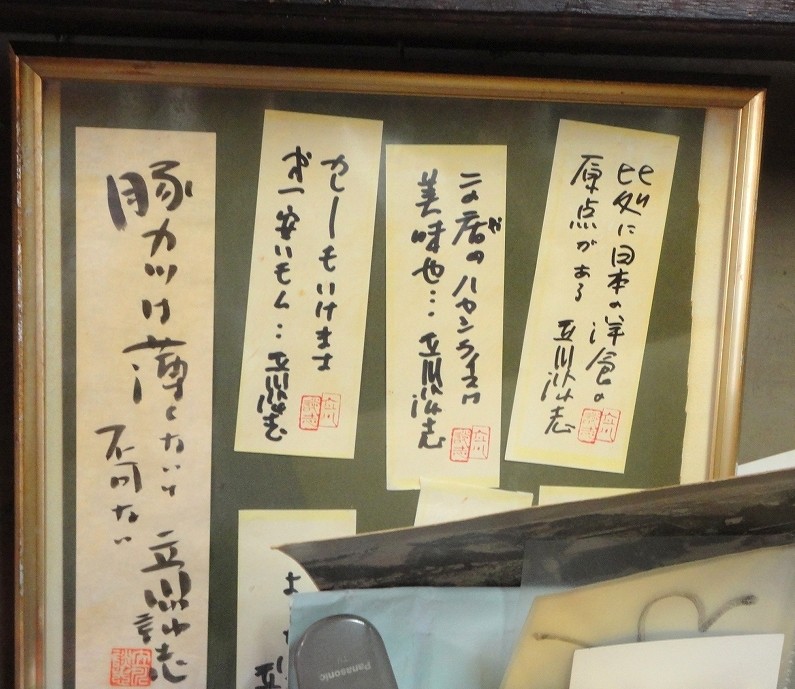 此処に日本の洋食の
原点がある 立川談志
この店のハヤシライスは
美味也… 立川談志
カレーもいけます
第一安いもん… 立川談志
豚カツは薄くないと
不可ない
立川談志
立川
談志
立川
談志
立川
談志
Panasonic
TV